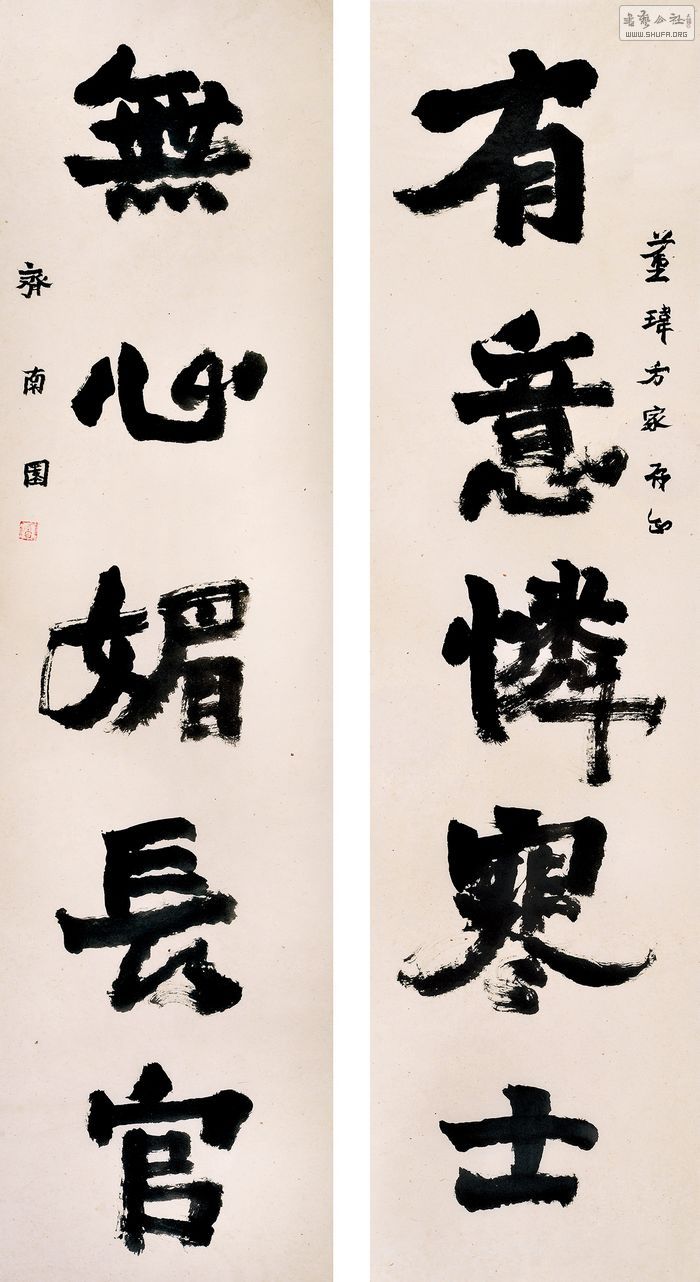 書藝公社
WWW.SHUFA.ORG
董瑋方家存正
有意憐寒士
無心媚長官
齊南園